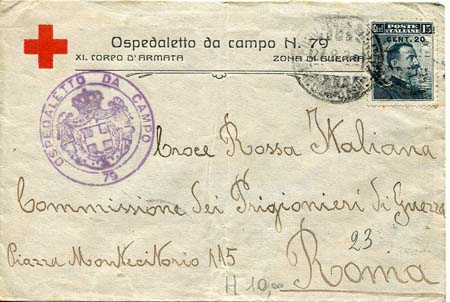 Ospedaletto da campo N. 79
XI. CORPO D'ARMATA ZONA DI GUERRA
POSTE ITALIANE 15
CENT. 20
OSPEDALETTO DA CAMPO
79
Croce Rossa Italiana
Commissione dei Prigionieri di Guerra
23
Piazza Montecitorio 115
H 10,00 Roma